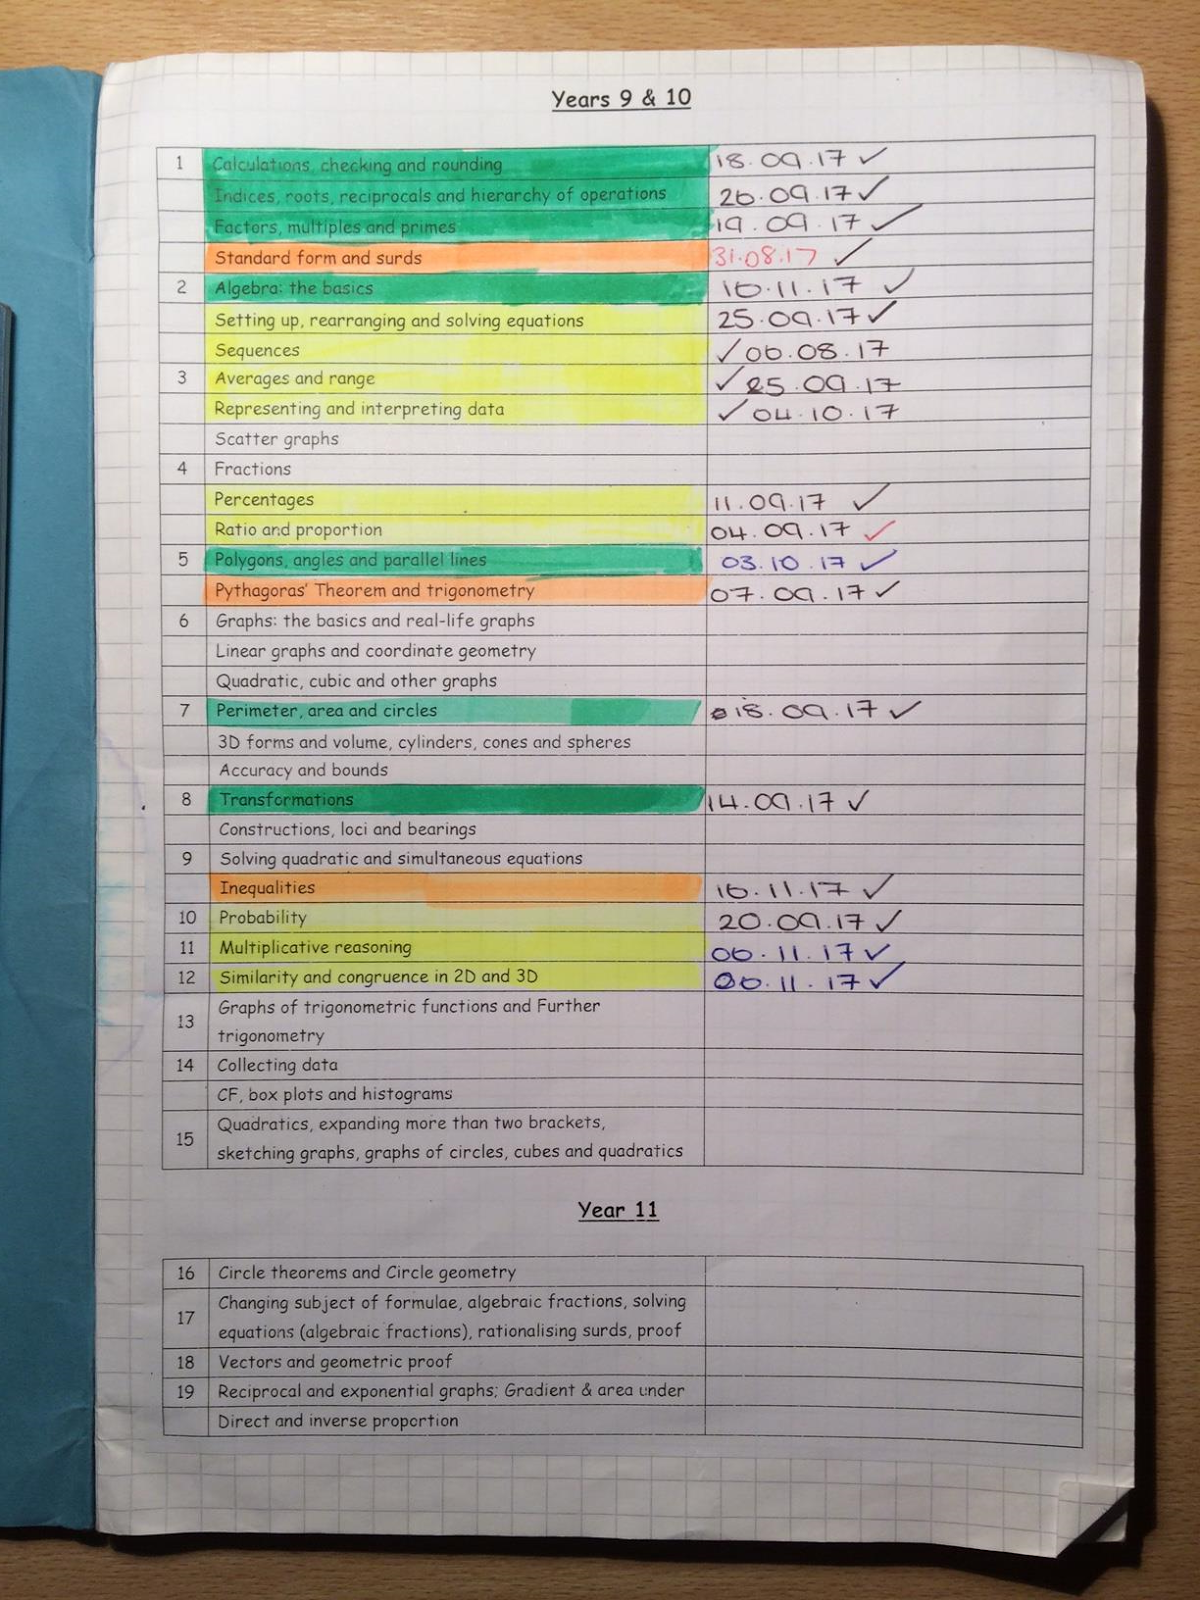 Years 9 & 10
1 Calculations, checking and rounding 18.09.17 ✓
Indices, roots, reciprocals and hierarchy of operations 26.09.17 ✓
Factors, multiples and primes 19.09.17 ✓
Standard form and surds 31.08.17 ✓
2 Algebra: the basics 16.11.17 ✓
Setting up, rearranging and solving equations 25.09.17 ✓
Sequences ✓ 06.08.17
3 Averages and range ✓ 25.09.17
Representing and interpreting data ✓ 04.10.17
Scatter graphs
4 Fractions
Percentages 11.09.17 ✓
Ratio and proportion 04.09.17 ✓
5 Polygons, angles and parallel lines 03.10.17 ✓
Pythagoras' Theorem and trigonometry 07.09.17 ✓
6 Graphs: the basics and real-life graphs
Linear graphs and coordinate geometry
Quadratic, cubic and other graphs
7 Perimeter, area and circles 18.09.17 ✓
3D forms and volume, cylinders, cones and spheres
Accuracy and bounds
8 Transformations 14.09.17 ✓
Constructions, loci and bearings
9 Solving quadratic and simultaneous equations
Inequalities 16.11.17 ✓
10 Probability 20.09.17 ✓
11 Multiplicative reasoning 06.11.17 ✓
12 Similarity and congruence in 2D and 3D 06.11.17 ✓
13 Graphs of trigonometric functions and Further
trigonometry
14 Collecting data
CF, box plots and histograms
15 Quadratics, expanding more than two brackets,
sketching graphs, graphs of circles, cubes and quadratics
Year 11
16 Circle theorems and Circle geometry
17 Changing subject of formulae, algebraic fractions, solving
equations (algebraic fractions), rationalising surds, proof
18 Vectors and geometric proof
19 Reciprocal and exponential graphs; Gradient & area under
Direct and inverse proportion